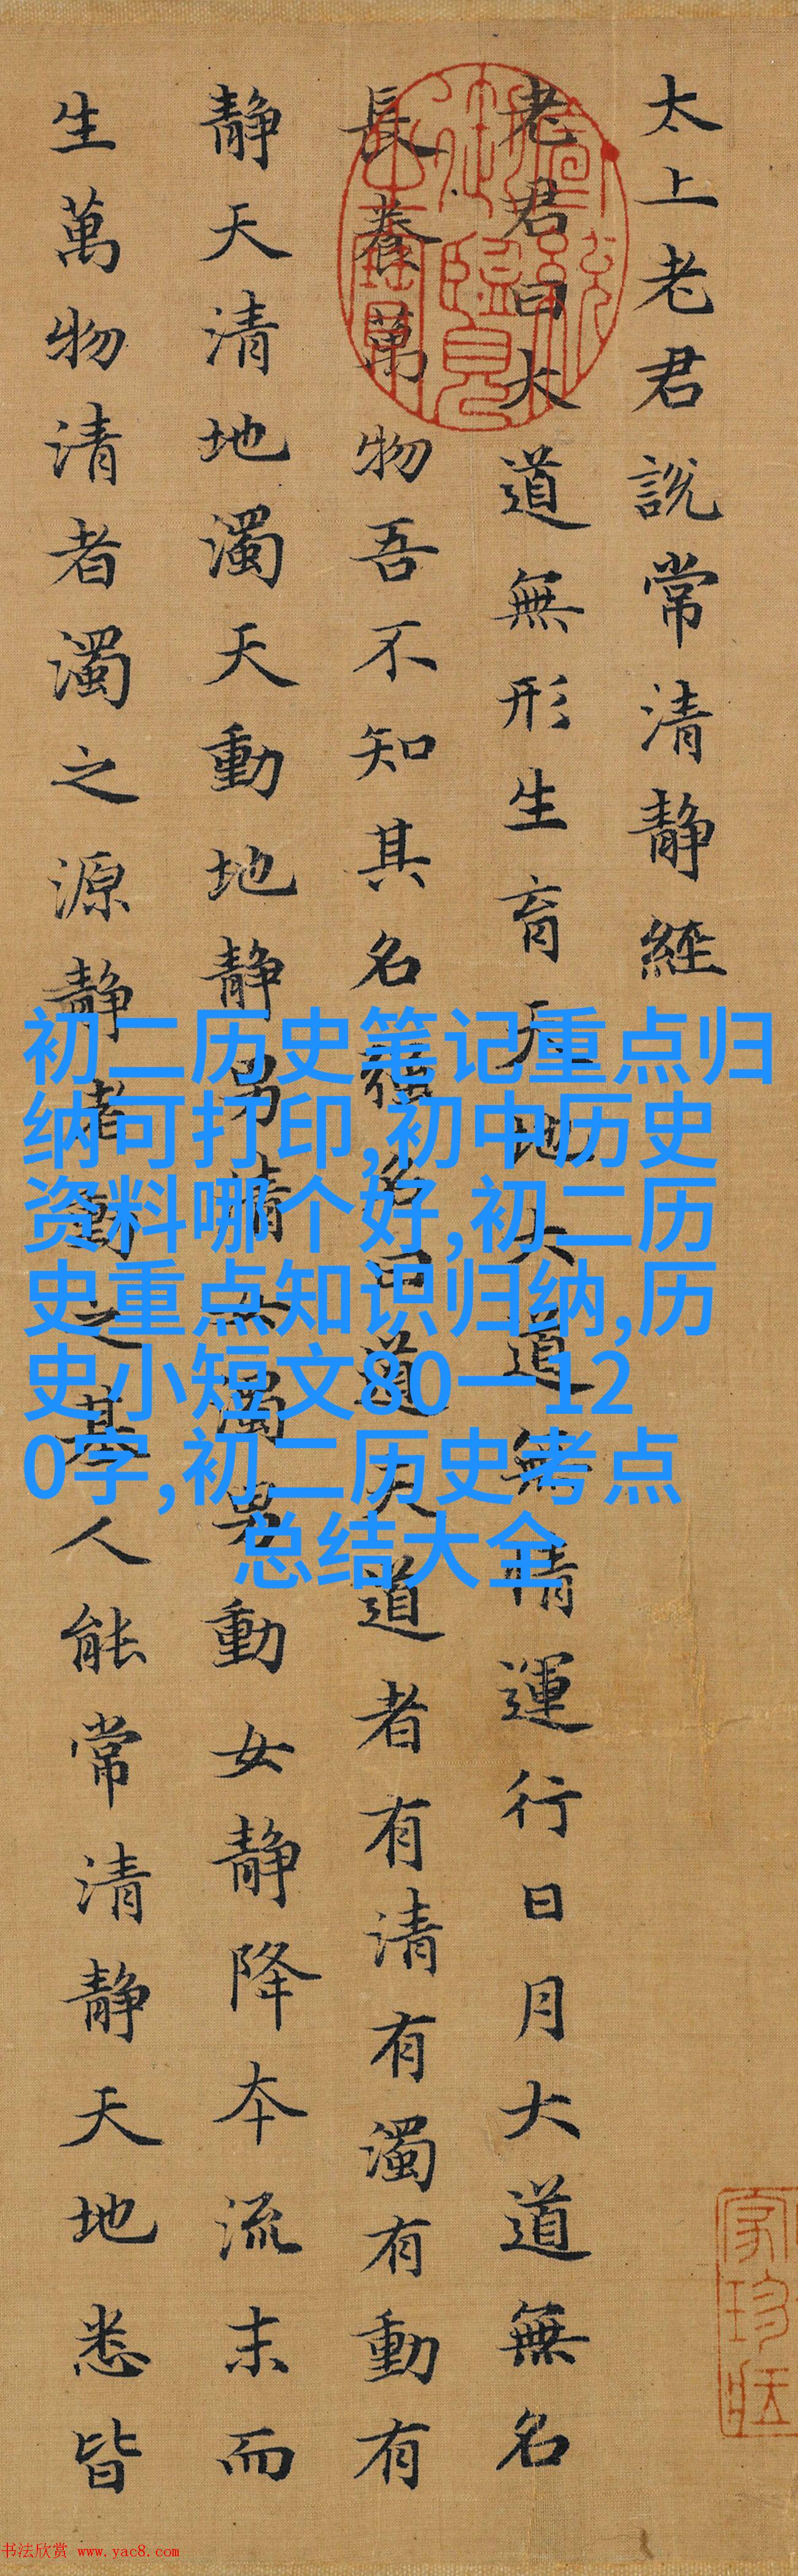 太上老君說常清靜經
老君曰大道無形生育天地大道無情運行日月大道無名
長養萬物吾不知其名強名曰道夫道者有清有濁有動有
靜天清地濁天動地靜男清女濁男動女靜降本流末而
生萬物清者濁之源靜者動之基人能常清靜天地悉皆
初二历史笔记重点归
纳可打印,初中历史
资料哪个好,初二历
史重点知识归纳,历
史小短文80一12
0字,初二历史考点
总结大全
书法欣赏 www.yac8.com